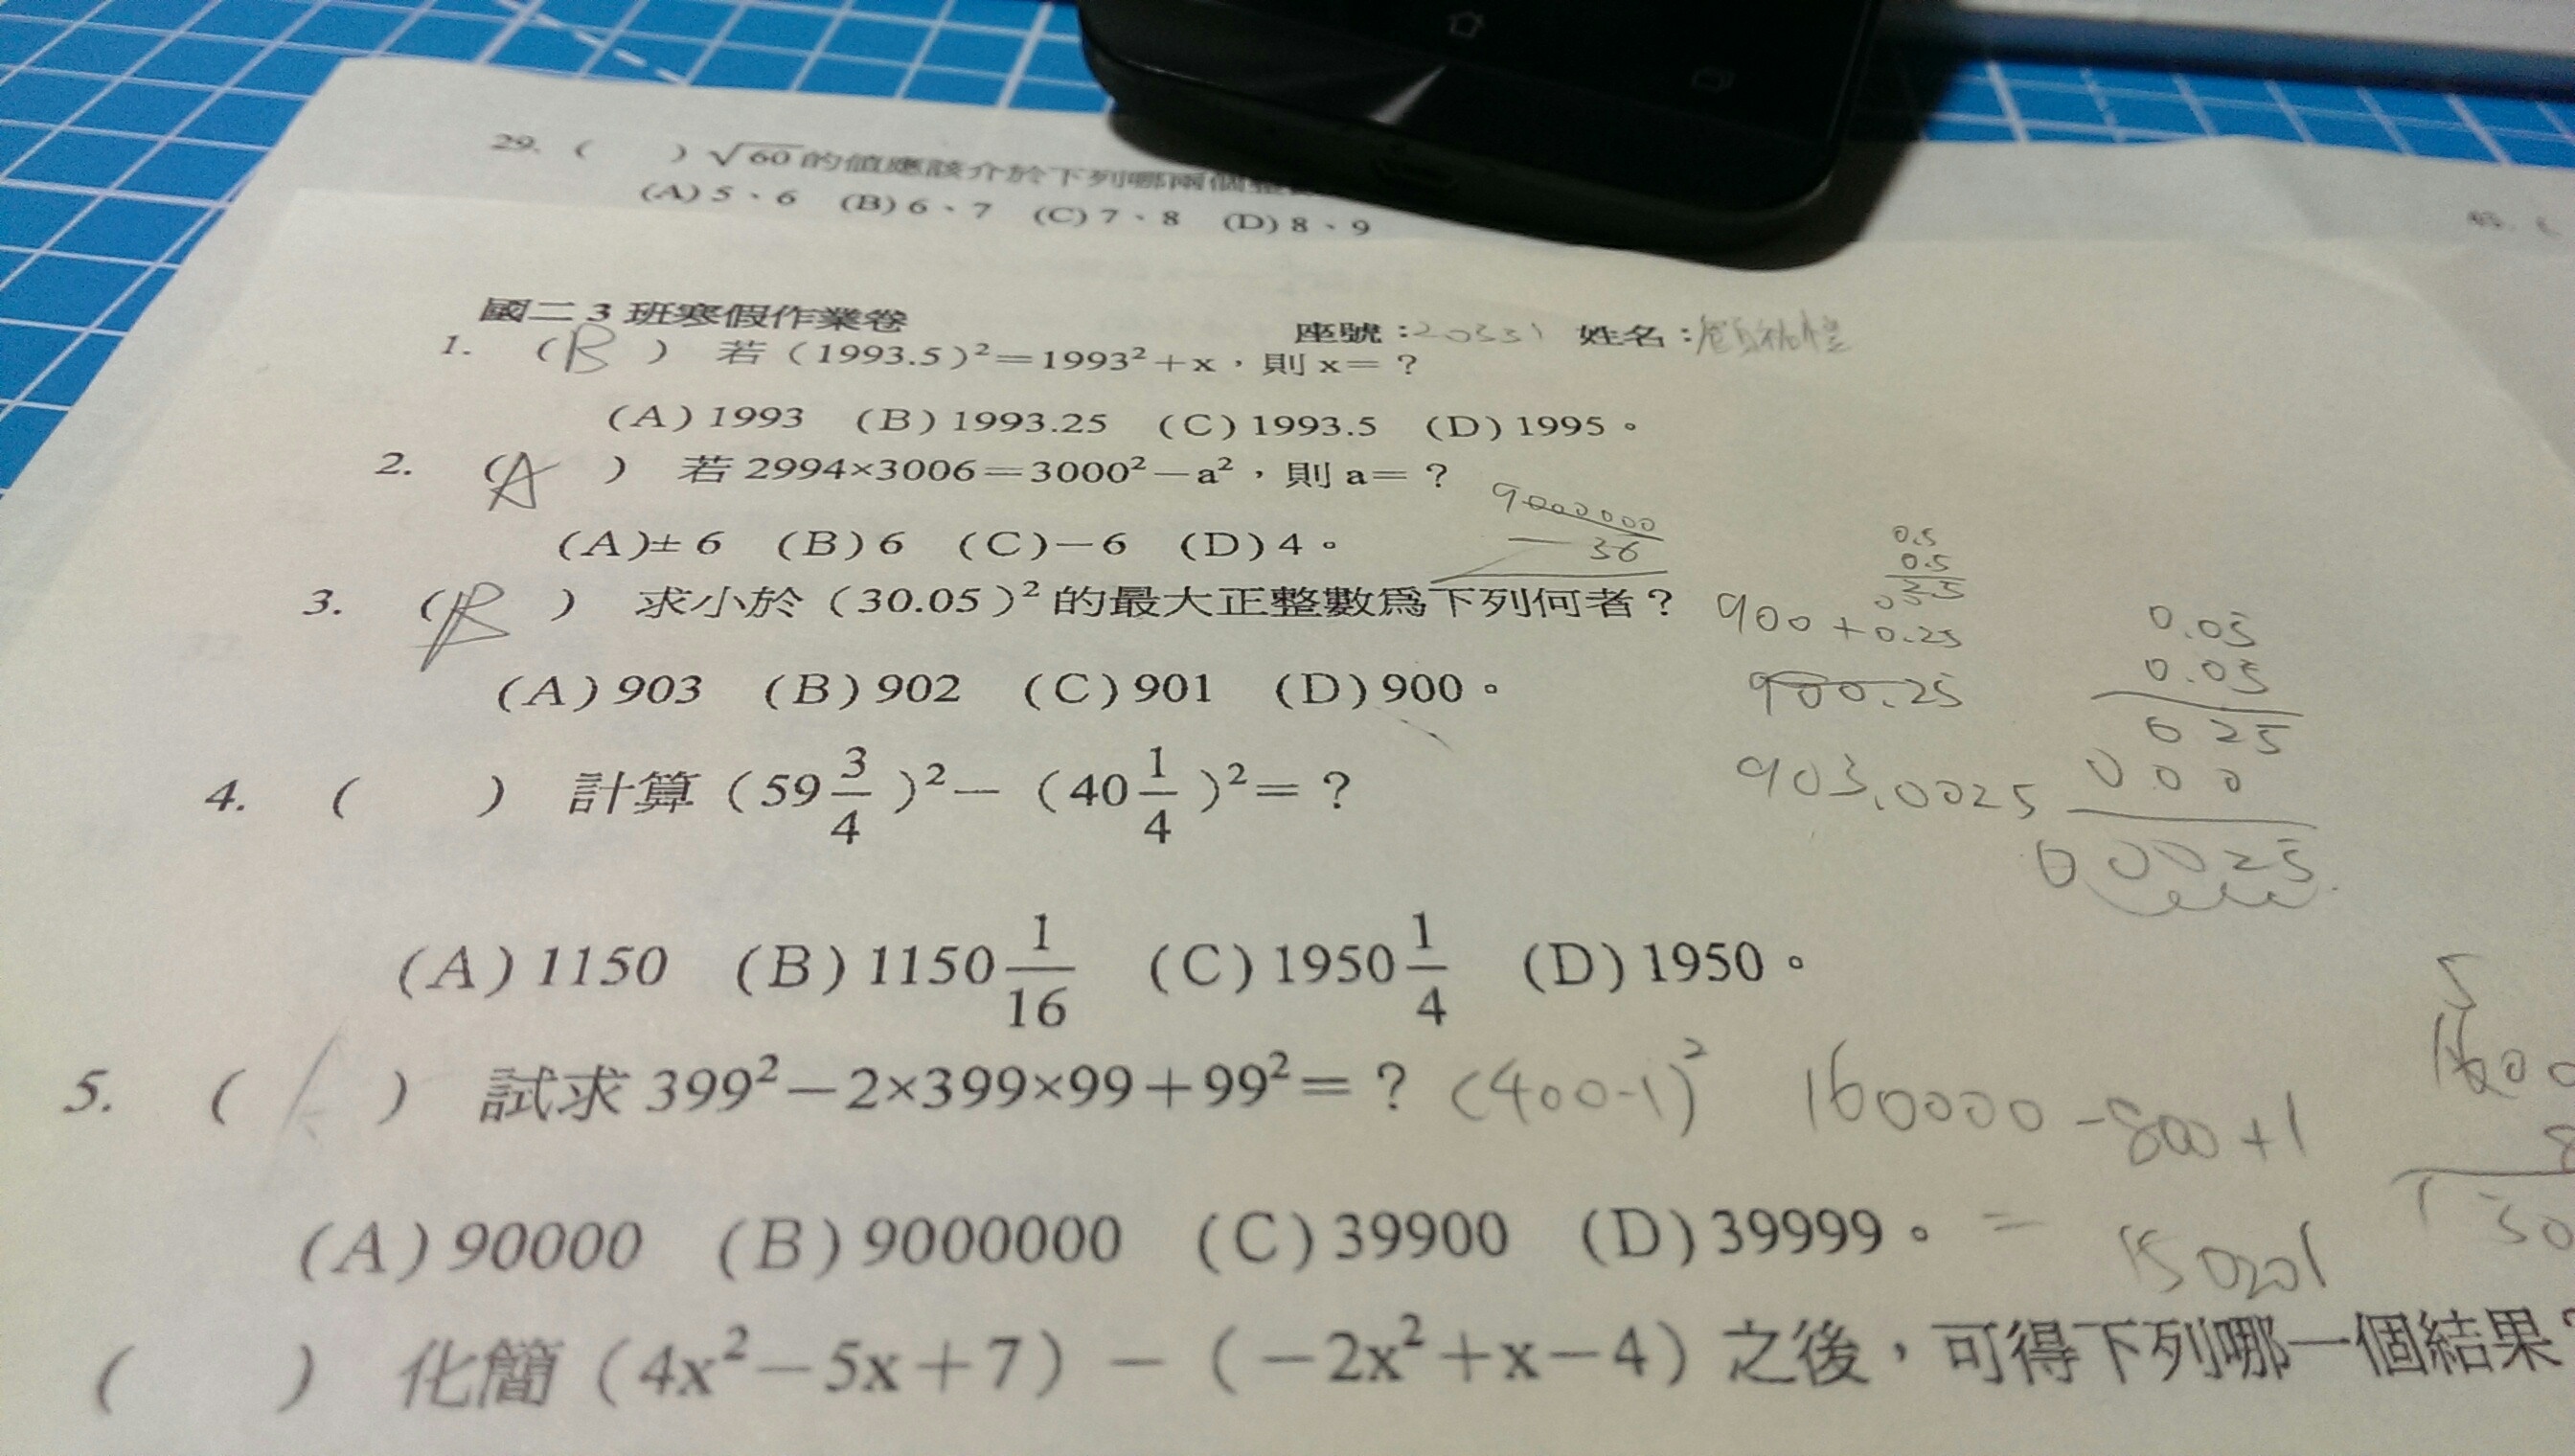 29. ( ) √60的值應該介於下列哪兩個整
(A) 5、6 (B) 6、7 (C) 7、8 (D) 8、9
國二 3 班寒假作業卷
座號：20331 姓名：
1. (B) 若（1993.5）²＝1993²＋x，則 x＝？
(A) 1993 (B) 1993.25 (C) 1993.5 (D) 1995。
2. (A) 若 2994×3006＝3000²－a²，則 a＝？
9000000
— 36
(A)± 6 (B) 6 (C)－6 (D) 4。
0.5
0.5
3. (B) 求小於（30.05）²的最大正整數為下列何者？
900+0.25
0.05
0.05
(A) 903 (B) 902 (C) 901 (D) 900。
900.25
025
000
903.0025
00025
4. ( ) 計算（59 3/4）²－（40 1/4）²＝？
(A) 1150 (B) 1150 1/16 (C) 1950 1/4 (D) 1950。
5. ( ) 試求 399²－2×399×99＋99²＝？ (400-1)² 160000-800+1
(A) 90000 (B) 9000000 (C) 39900 (D) 39999。 = 150201
( ) 化簡（4x²－5x＋7）－（－2x²＋x－4）之後，可得下列哪一個結果？